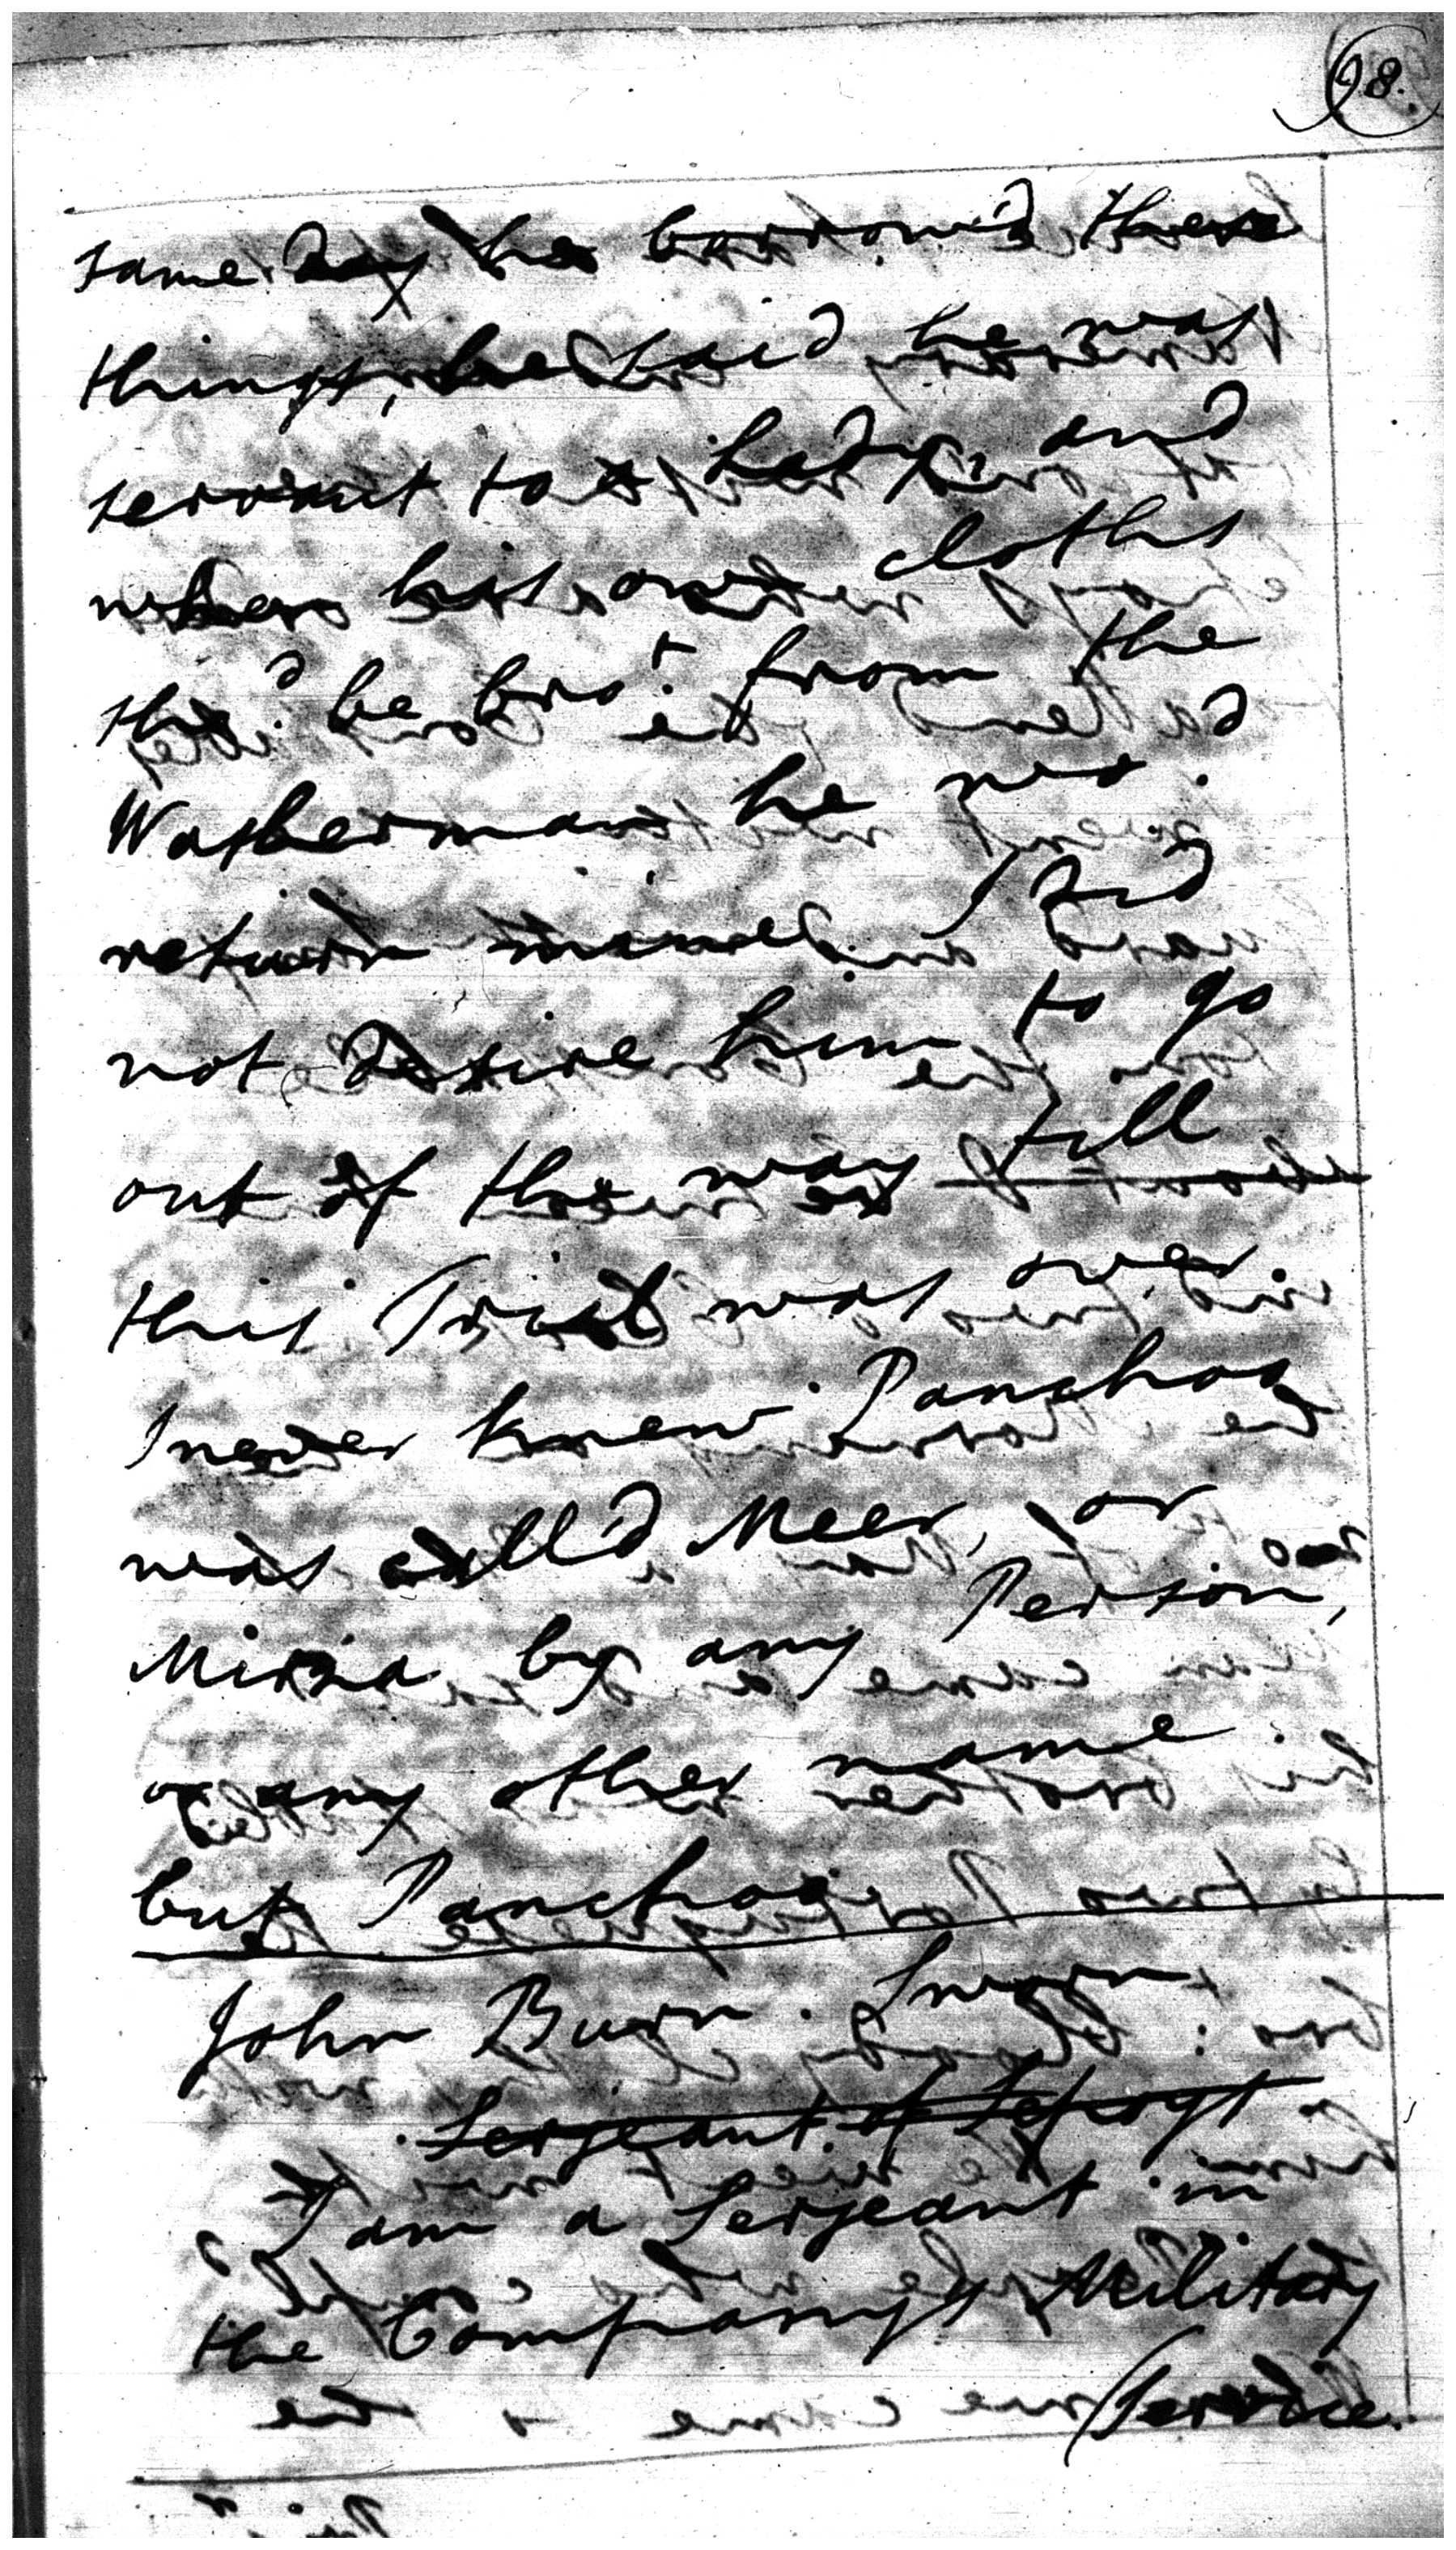 98.
same day he borrow'd these
things, he said he was
servant to a Lady, and
when his own cloths
shd. be brot. from the
Washerman he wod.
return mine. I did
not desire him to go
out of the way till
this Trial was over.
I never knew Panchoo
was call'd Meer, or
Mirza by any Person,
or any other name
but Panchoo.
John Burn. Sworn
Serjeant of Sepoys
I am a Serjeant in
the Company's Military
Service.